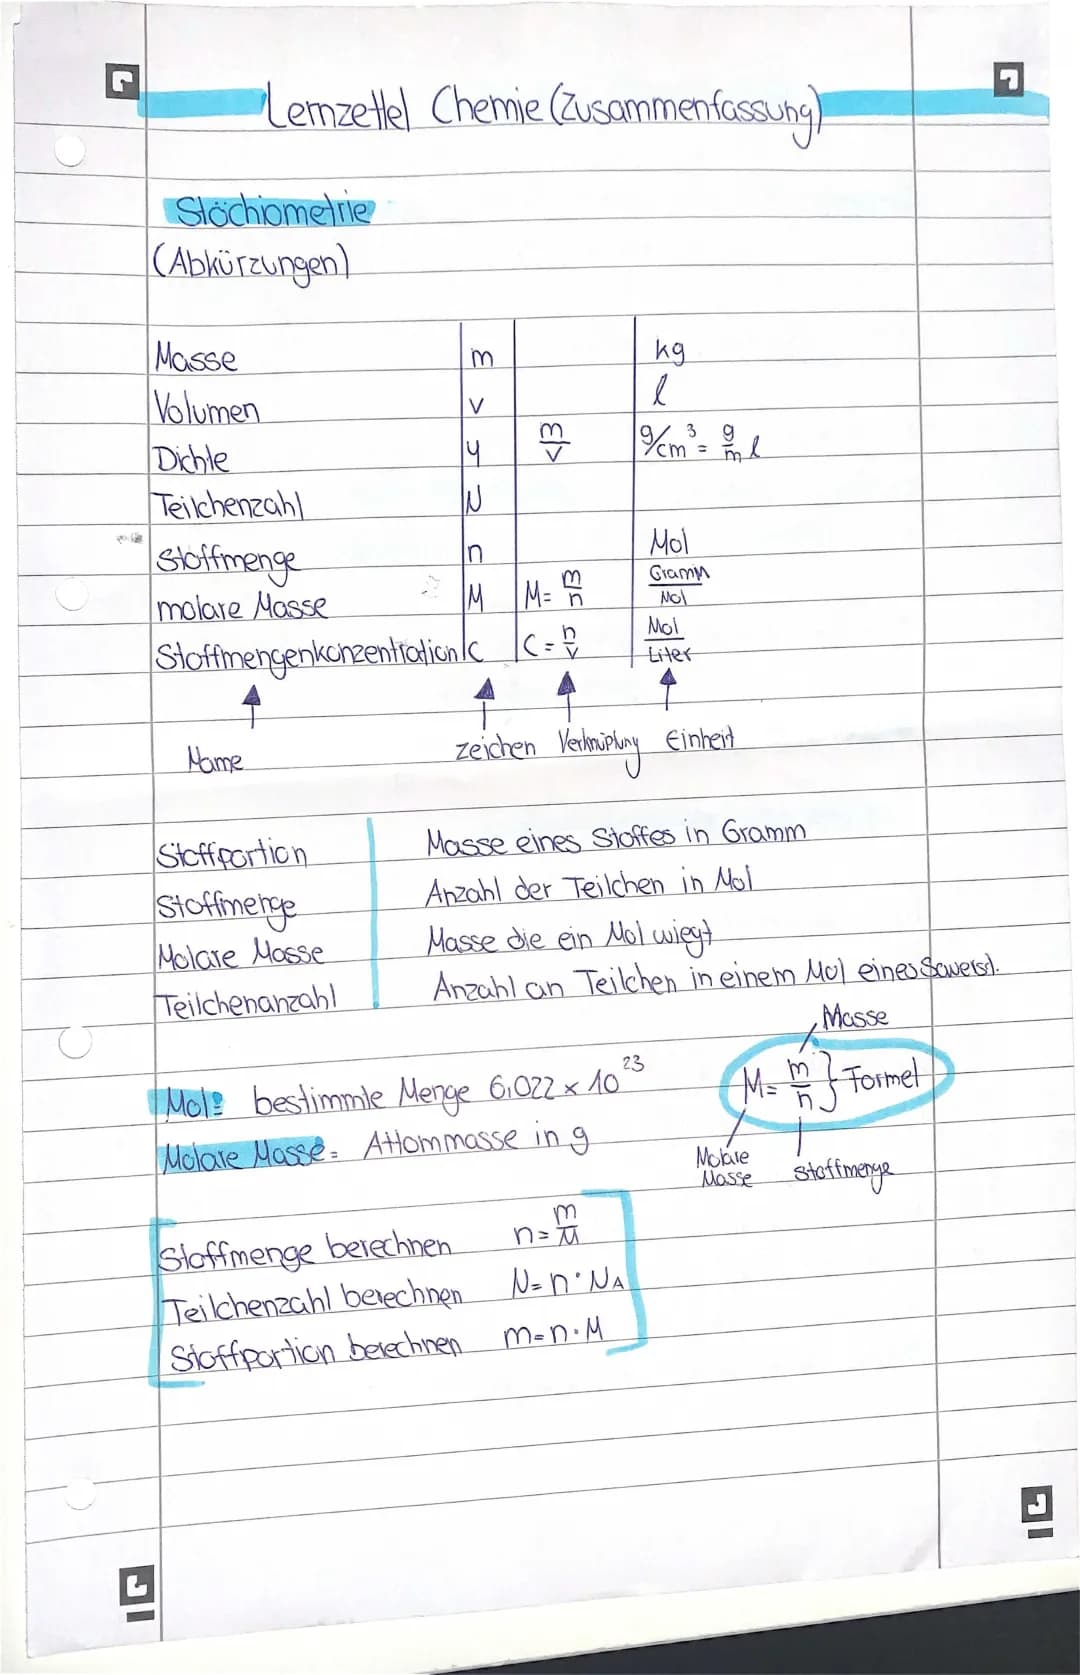 Lernzettel Chemie (Zusammenfassung)
Stöchiometrie
(Abkürzungen)
Masse m kg
Volumen v l
Dichte y m/v g/cm³ = g/m l
Teilchenzahl N
Stoffmenge n Mol
molare Masse M M = m/n Gramm/Mol
Stoffmengenkonzentration c C = n/v Mol/Liter
Name zeichen Verknüpfung Einheit
Stoffportion Masse eines Stoffes in Gramm
Stoffmenge Anzahl der Teilchen in Mol
Molare Masse Masse die ein Mol wiegt
Teilchenanzahl Anzahl an Teilchen in einem Mol eines Sauerst.
Masse
Mol: bestimmte Menge 6,022 x 10²³ M = m/n } Formel
Molare Masse = Attommasse in g
Molare Masse Stoffmenge
Stoffmenge berechnen n = m/M
Teilchenzahl berechnen N = n · NA
Stoffportion berechnen m = n · M